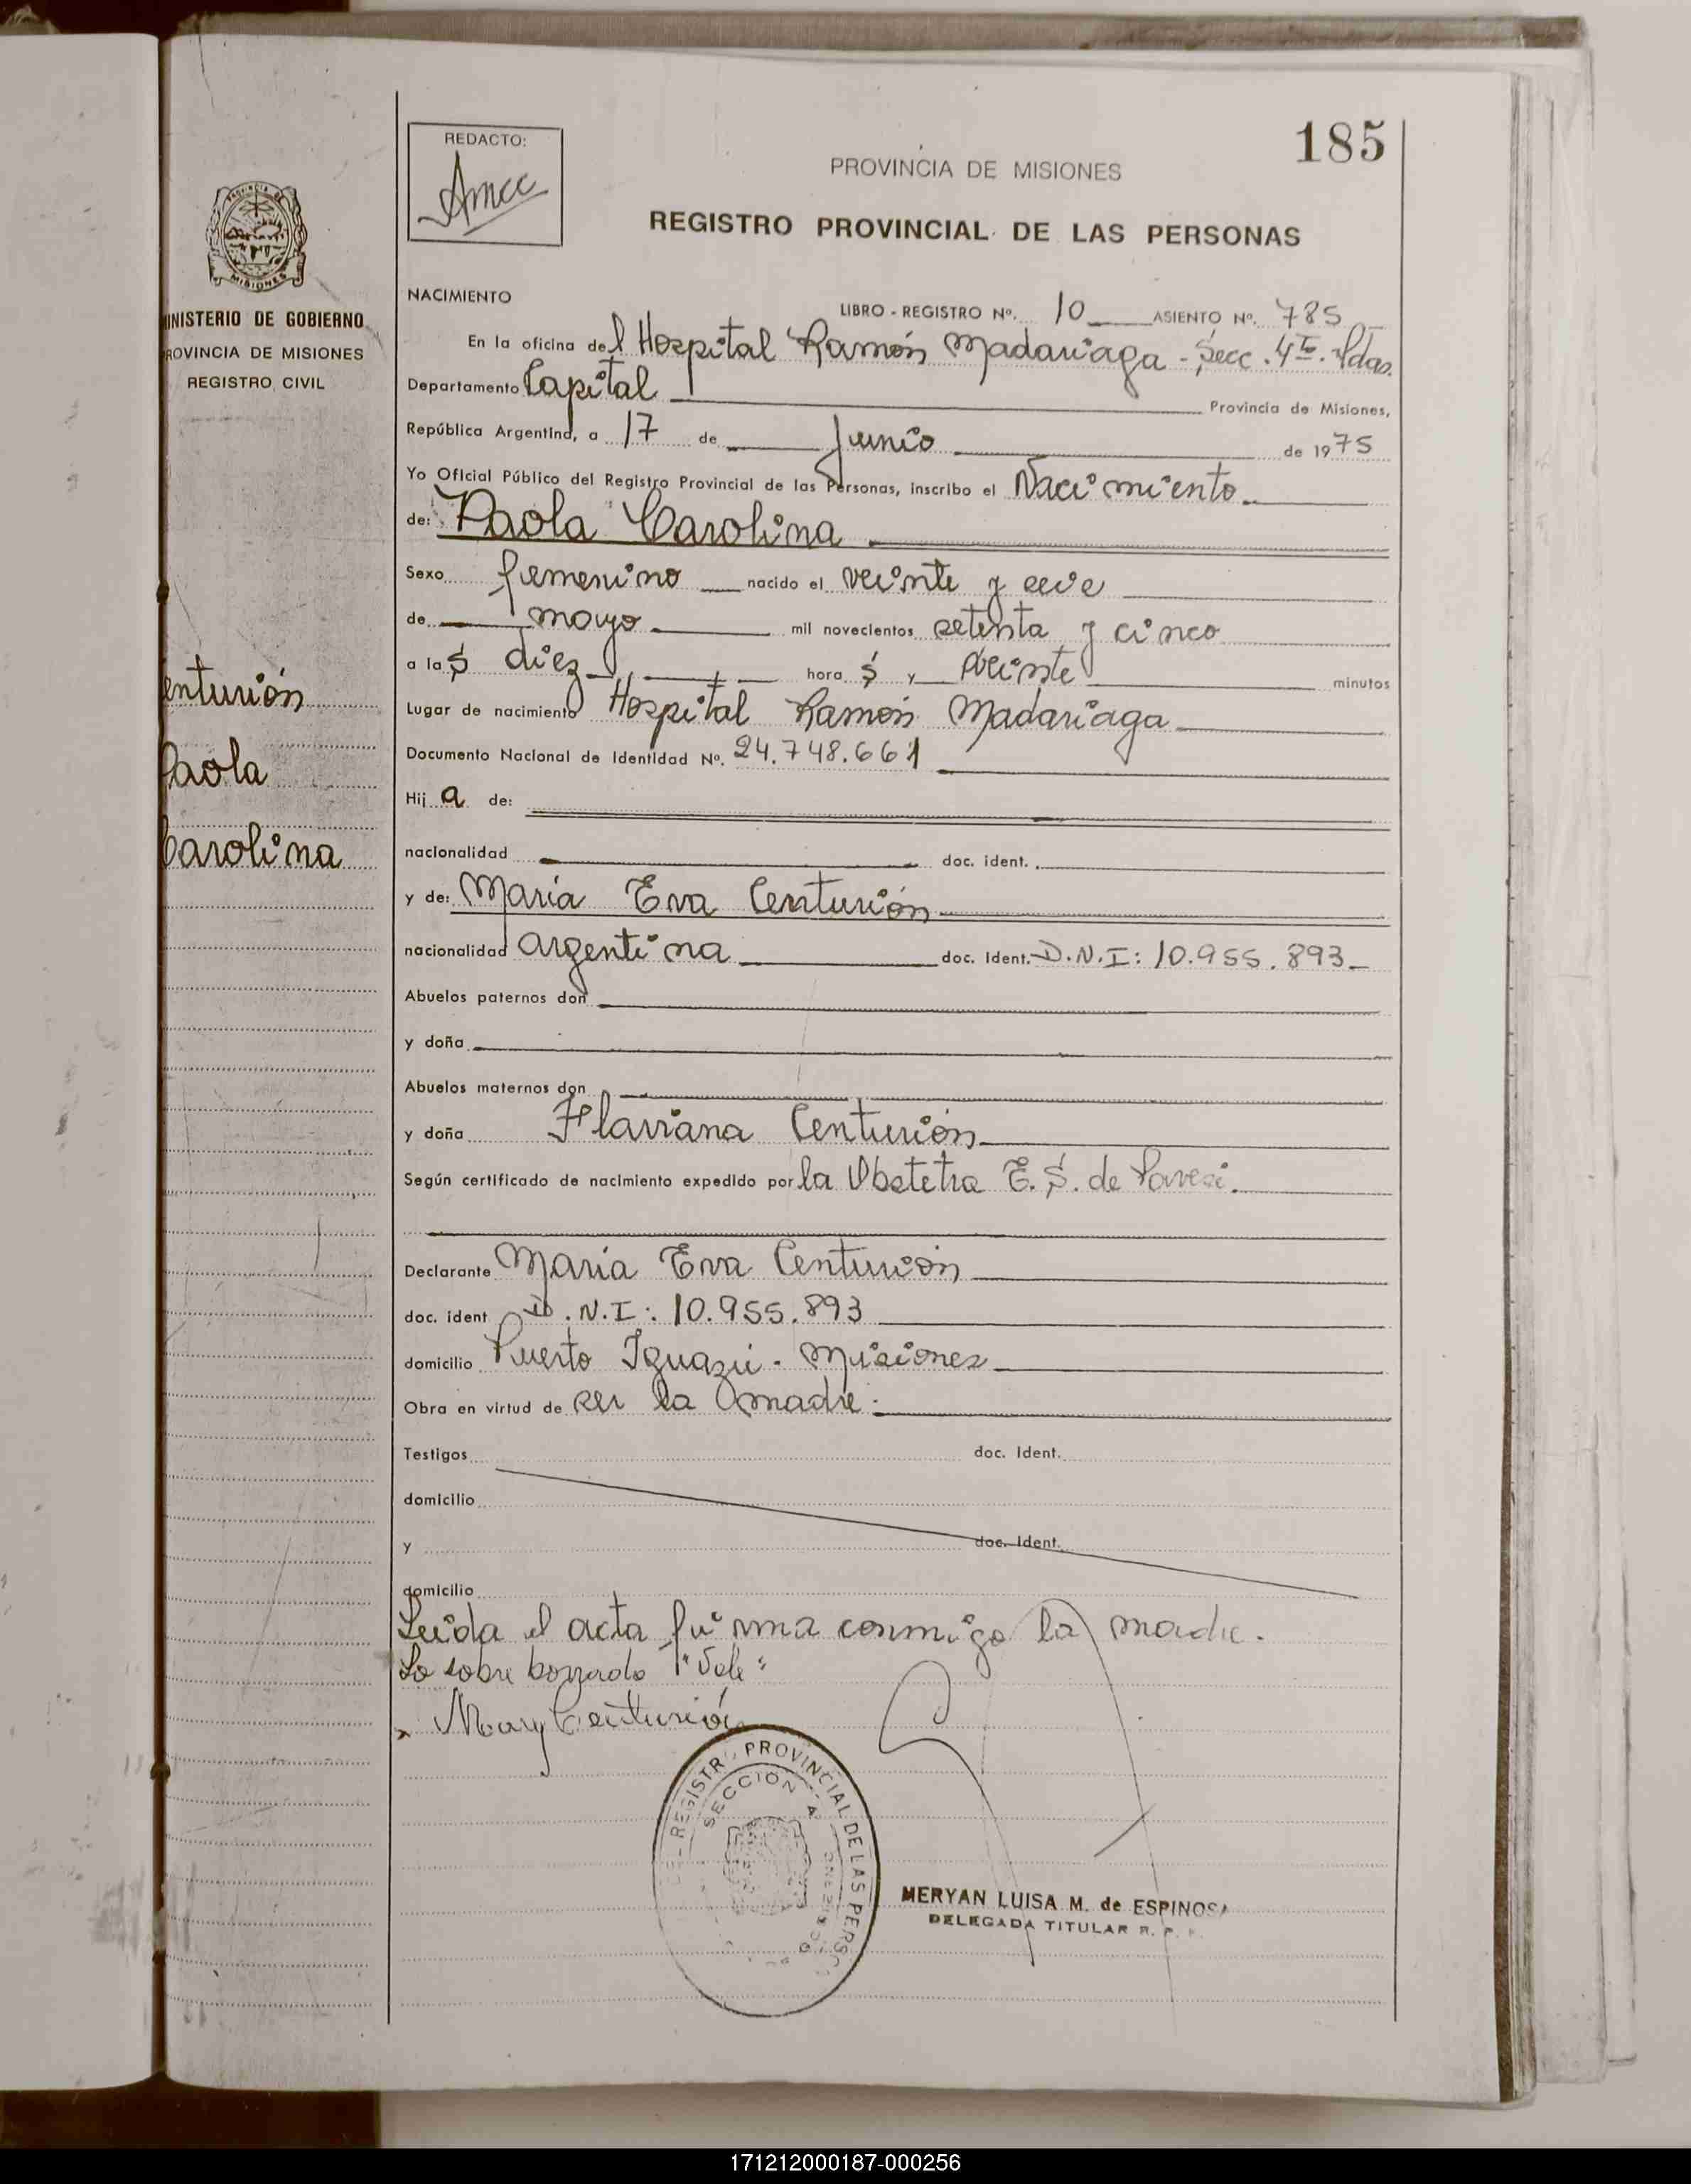 185
REDACTO:
PROVINCIA DE MISIONES
REGISTRO PROVINCIAL DE LAS PERSONAS
PROVINCIA DE
MISIONES
MINISTERIO DE GOBIERNO
PROVINCIA DE MISIONES
REGISTRO CIVIL
enturión
Paola
Carolina
NACIMIENTO
LIBRO - REGISTRO Nº. 10 ASIENTO Nº. 785
En la oficina del Hospital Ramón Madariaga - Secc. 4ta. Pdas.
Departamento Capital Provincia de Misiones,
República Argentina, a 17 de Junio de 1975
Yo Oficial Público del Registro Provincial de las Personas, inscribo el Nacimiento
de: Paola Carolina
Sexo femenino nacido el veinte y
de mayo mil novecientos setenta y cinco
a las diez horas y veinte minutos
Lugar de nacimiento Hospital Ramón Madariaga
Documento Nacional de Identidad Nº. 24.748.661
Hija de:
nacionalidad doc. ident.
y de: María Eva Centurión
nacionalidad argentina doc. ident. D.N.I: 10.955.893
Abuelos paternos don
y doña
Abuelos maternos don
y doña Flaviana Centurión
Según certificado de nacimiento expedido por la Obstetra E. S. de Pavesi.
Declarante María Eva Centurión
doc. ident D.N.I: 10.955.893
domicilio Puerto Iguazú - Misiones
Obra en virtud de ser la madre.
Testigos doc. Ident.
domicilio
y doc. Ident.
domicilio
Leida el acta firma conmigo la madre.
Lo sobre borrado "Vale"
Mary Centurión
REGISTRO PROVINCIAL DE LAS PERSO
SECCIÓN 4
MERYAN LUISA M. de ESPINOSA
DELEGADA TITULAR R. P.
171212000187-000256